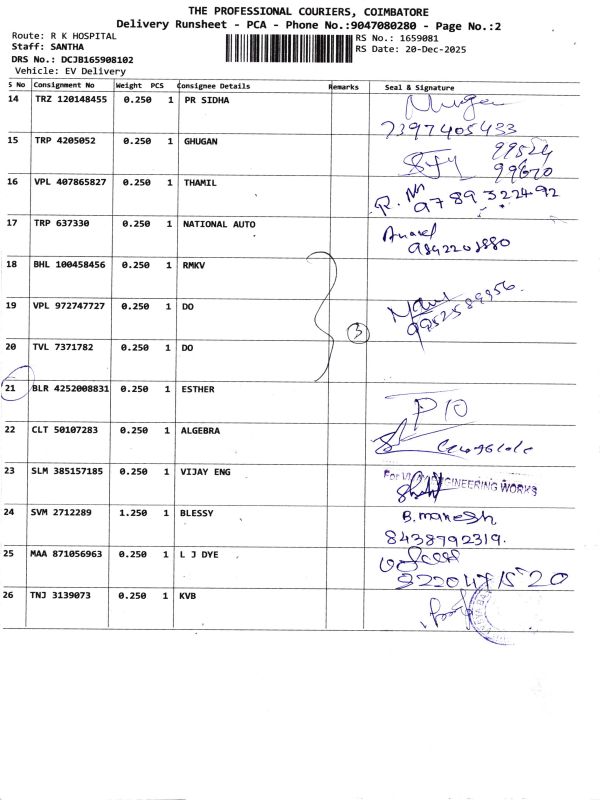 THE PROFESSIONAL COURIERS, COIMBATORE
Delivery Runsheet - PCA - Phone No.:9047080280 - Page No.:2
Route: R K HOSPITAL
RS No.: 1659081
Staff: SANTHA
RS Date: 20-Dec-2025
DRS No.: DCJB165908102
Vehicle: EV Delivery
S No Consignment No Weight PCS Consignee Details Remarks Seal & Signature
14 TRZ 120148455 0.250 1 PR SIDHA
7397405433
15 TRP 4205052 0.250 1 GHUGAN
99524
99670
16 VPL 407865827 0.250 1 THAMIL
9789322492
17 TRP 637330 0.250 1 NATIONAL AUTO
18 BHL 100458456 0.250 1 RMKV
19 VPL 972747727 0.250 1 DO
3
20 TVL 7371782 0.250 1 DO
21 BLR 4252008831 0.250 1 ESTHER
P10
22 CLT 50107283 0.250 1 ALGEBRA
23 SLM 385157185 0.250 1 VIJAY ENG
For VIJAY ENGINEERING WORKS
24 SVM 2712289 1.250 1 BLESSY
B. manesh
8438792319.
25 MAA 871056963 0.250 1 L J DYE
26 TNJ 3139073 0.250 1 KVB